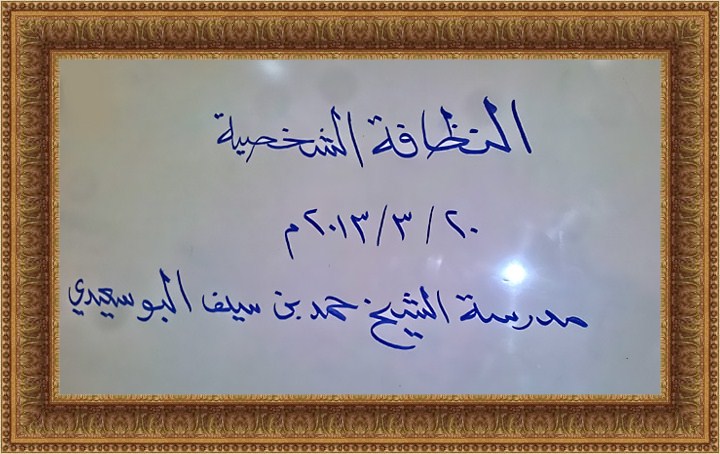 النظافة الشخصية
٢٠ / ٣ / ٢٠١٣ م
مدرسة الشيخ حمد بن سيف البوسعيدي